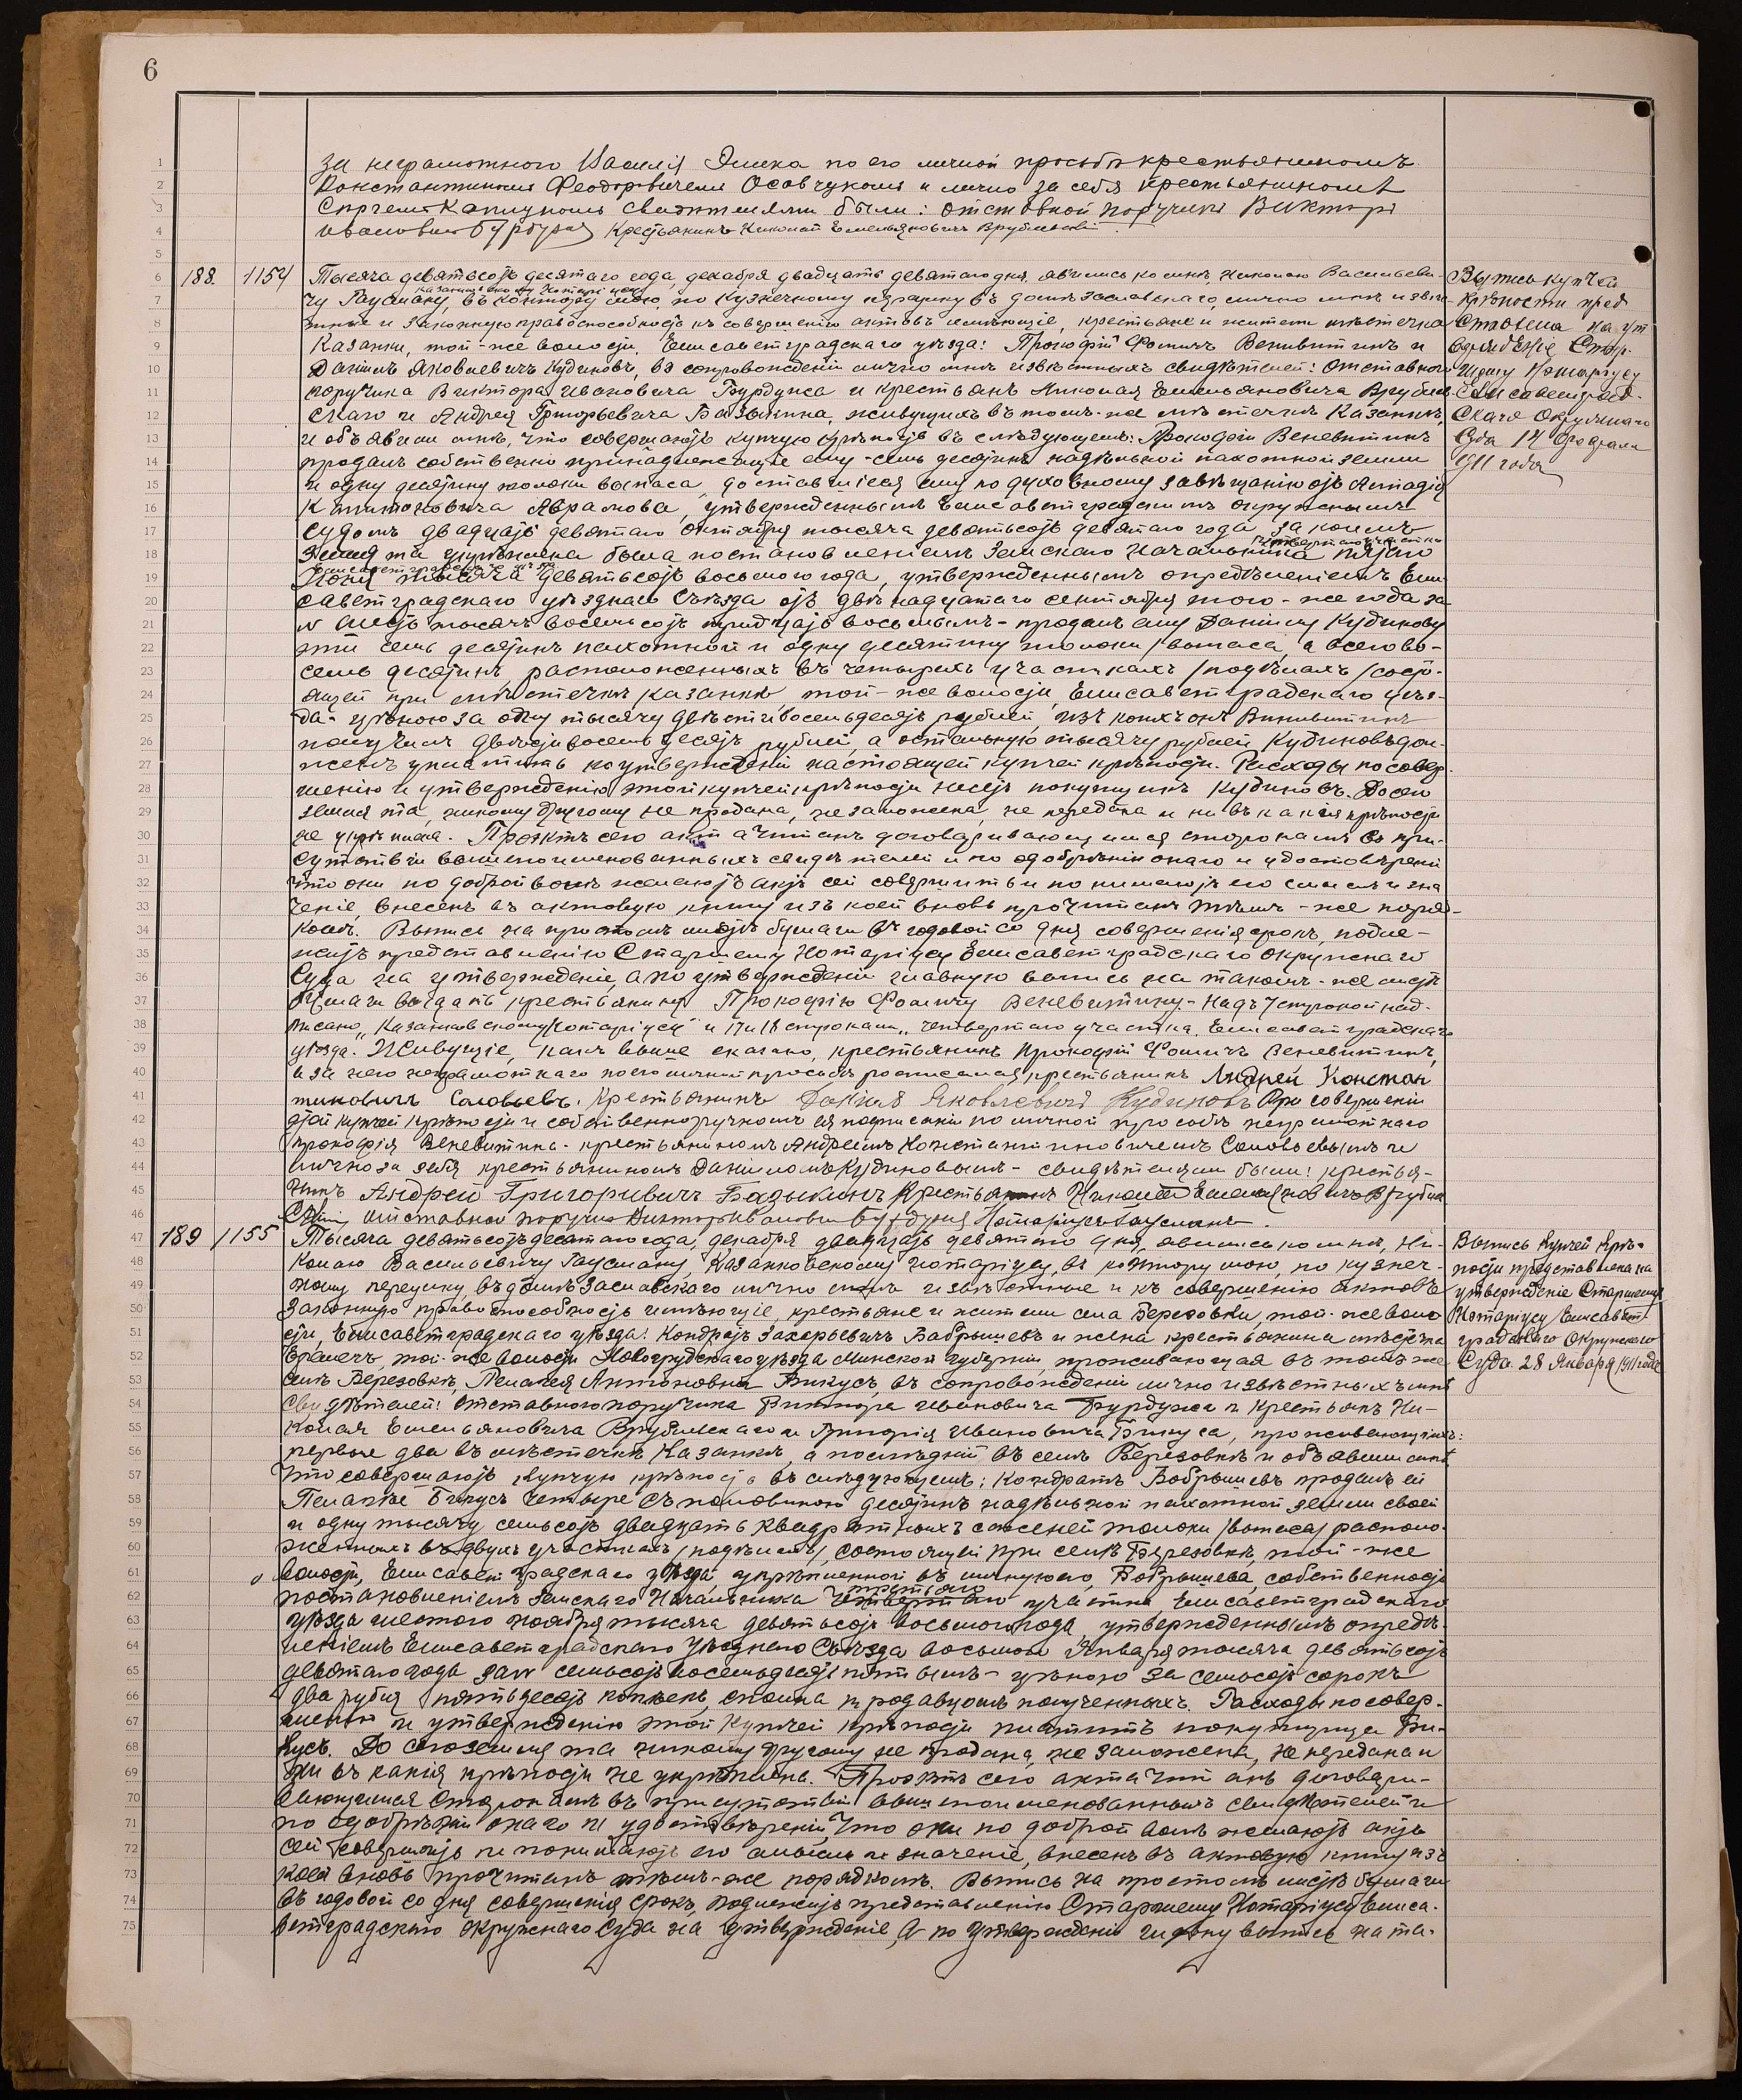 6
за неграмотного Василія по его личной просьбѣ крестьяниномъ
Константиномъ Феодоровичемъ Осовчукомъ и лично за себя крестьяниномъ
Сергѣемъ свидѣтелями были: отставной поручикъ Викторъ
Ивановичъ Бурдужа Крестьянинъ Николай Емельяновичъ Врублевскій.
188. 1154 Тысяча девятьсотъ десятаго года, декабря двадцать девятаго дня, явились ко мнѣ, Николаю Васильеви-
Казанковскому Нотаріусу
чу Гаусману, въ контору мою, по Кузнечному переулку въ домѣ Заславскаго, лично мнѣ извѣст-
ные и законную правоспособность къ совершенію актовъ имѣющіе, крестьяне и жители мѣстечка
Казанки, той-же волости, Елисаветградскаго уѣзда: Прокофій Фомичъ Веневитинъ и
Даніилъ Яковлевичъ Кудиновъ, въ сопровожденіи лично мнѣ извѣстныхъ свидѣтелей: отставного
поручика Виктора Ивановича Бурдужа и крестьянъ Николая Емельяновича Врублев-
скаго и Андрея Григорьевича Базыкина, живущихъ въ томъ-же мѣстечкѣ Казанкѣ,
и объявили мнѣ, что совершаютъ купчую крѣпость въ слѣдующемъ: Прокофій Веневитинъ
продалъ собственно принадлежащіе ему семь десятинъ надѣльной пахотной земли
и одну десятину толоки выпаса, доставшіеся ему по духовному завѣщанію отъ
Авралова, утвержденнымъ Елисаветградскимъ окружнымъ
судомъ двадцать девятаго Октября тысяча девятьсотъ девятаго года, за коимъ
четвертаго участка
земля та укрѣплена была постановленіемъ Земскаго Начальника пятаго
Елисаветградскаго уѣзда
Іюня тысяча девятьсотъ восьмого года, утвержденнымъ опредѣленіемъ Ели-
саветградскаго уѣзднаго Съѣзда отъ двѣнадцатаго сентября того-же года за
№ шесть тысячъ восемьсотъ тридцать восьмымъ - продалъ ему Даніилу Кудинову
эти семь десятинъ пахотной и одну десятину толоки /выпаса/, а всего во-
семь десятинъ, расположенныхъ въ четырехъ участкахъ /подѣлахъ/ состо-
ящей при мѣстечкѣ Казанкѣ, той-же волости, Елисаветградскаго уѣз-
да - цѣною за одну тысячу двѣсти восемьдесятъ рублей, изъ коихъ онъ Веневитинъ
получилъ двѣсти восемьдесятъ рублей, а остальную тысячу рублей Кудиновъ дол-
женъ уплатить по утвержденіи настоящей купчей крѣпости. Расходы по совер-
шенію и утвержденію этой купчей крѣпости несетъ покупщикъ Кудиновъ. До сего
земля та, никому другому не продана, не заложена, не передана и ни въ какія крѣпости
не укрѣплена. Проэктъ сего акта читанъ договаривающимся сторонамъ въ при-
сутствіи вышепоименованныхъ свидѣтелей и по одобреніи онаго и удостовѣреніи
что они по доброй волѣ желаютъ актъ сей совершить и понимаютъ его смыслъ и зна-
ченіе, внесенъ въ актовую книгу изъ коей вновь прочитанъ тѣмъ-же поряд-
комъ. Выпись на простомъ листѣ бумаги въ годовой со дня совершенія срокъ, подле-
житъ представленію Старшему Нотаріусу Елисаветградскаго Окружнаго
Суда на утвержденіе, а по утвержденіи главную выпись на такомъ-же листѣ
бумаги выдать крестьянину Прокофію Фомичу Веневитину. Надъ 7 строкой над-
писано „Казанковскому Нотаріусу" и 17 и 18 строками „четвертаго участка, Елисаветградскаго
уѣзда. Живущіе, какъ выше сказано, крестьянинъ Прокофій Фомичъ Веневитинъ,
а за него неграмотнаго по его личной просьбѣ росписался крестьянинъ Андрей Констан
тиновичъ Соловьевъ. Крестьянинъ Данiилъ Яковлевичъ Кудиновъ При совершеніи
этой купчей крѣпости и собственноручномъ ея подписаніи по личной просьбѣ неграмотнаго
Прокофія Веневитина - крестьяниномъ Андреемъ Константиновичемъ Соловьевымъ и
лично за себя крестьяниномъ Даніиломъ Кудиновымъ - свидѣтелями были: крестья-
нинъ Андрей Григоривичъ Базыкинъ Крестьянинъ Николай Емельяновичъ Врублев
скій отставной поручикъ Викторъ Ивановичъ Бурдужа Нотаріусъ Гаусманъ.
189 1155 Тысяча девятьсотъ десятаго года, декабря двадцать девятаго дня, явились ко мнѣ, Ни-
колаю Васильевичу Гаусману, Казанковскому нотаріусу, въ контору мою, по кузнеч-
ному переулку, въ домѣ Заславскаго лично мнѣ извѣстные и къ совершенію актовъ
законную правоспособность имѣющіе, крестьяне и жители села Березовки, той-же воло
сти, Елисаветградскаго уѣзда: Кондратъ Захарьевичъ Бобрышевъ и жена крестьянина мѣстечка
той-же волости Новогрудскаго уѣзда Минской губерніи, проживающая въ томъ же
селѣ Березовкѣ, Пелагея Антоновна Бикусъ, въ сопровожденіи лично извѣстныхъ мнѣ
свидѣтелей: отставного поручика Виктора Ивановича Бурдужа и крестьянъ Ни-
колая Емельяновича Врублевскаго и Григорія Ивановича Бикуса, проживающихъ:
первые два въ мѣстечкѣ Казанкѣ, а послѣдній въ селѣ Березовкѣ и объявили мнѣ,
что совершаютъ купчую крѣпость въ слѣдующемъ: Кондратъ Бобрышевъ продалъ ей
Пелагеѣ Бикусъ четыре съ половиною десятинъ надѣльной пахотной земли своей
и одну тысячу семьсотъ двадцать квадратныхъ саженей толоки /выпаса/ располо-
женныхъ въ двухъ участкахъ /подѣлахъ/, состоящей при селѣ Березовкѣ, той-же
волости, Елисаветградскаго уѣзда, укрѣпленной въ личную его, Бобрышева, собственность
третьяго
постановленіемъ Земскаго Начальника четвертаго участка Елисаветградскаго
уѣзда шестого ноября тысяча девятьсотъ восьмого года, утвержденнымъ опредѣ-
леніемъ Елисаветградскаго Уѣзднаго Съѣзда восьмого Января тысяча девятьсотъ
девятаго года за № семьсотъ восемьдесятъ пятымъ - цѣною за семьсотъ сорокъ
два рубля пятьдесятъ копѣекъ, сполна продавцомъ полученныхъ. Расходы по совер-
шенію и утвержденію этой купчей крѣпости платитъ покупщица Би-
кусъ. До сего земля та никому другому не продана, не заложена, не передана и
ни въ какія крѣпости не укрѣплена. Проэктъ сего акта читанъ договари-
вающимся сторонамъ въ присутствіи вышепоименованныхъ свидѣтелей и
по одобреніи онаго и удостовѣреніи, что они по доброй волѣ желаютъ актъ
сей совершить и понимаютъ его смыслъ и значеніе, внесенъ въ актовую книгу изъ
коей вновь прочитанъ тѣмъ-же порядкомъ. Выпись на простомъ листѣ бумаги
въ годовой со дня совершенія срокъ, подлежитъ представленію Старшему Нотаріусу Елиса-
ветградскаго Окружнаго Суда на утвержденіе, а по утвержденіи главную выпись на та-
Выпись купчей
крѣпости пред
ставлена на ут
вержденіе Стар-
шему Нотаріусу
Елисаветград-
скаго Окружнаго
Суда 14 Февраля
1911 года
Выпись купчей крѣ-
пости представлена на
утвержденіе Старшему
Нотаріусу Елисавет-
градскаго Окружнаго
Суда 28 Января 1911 года